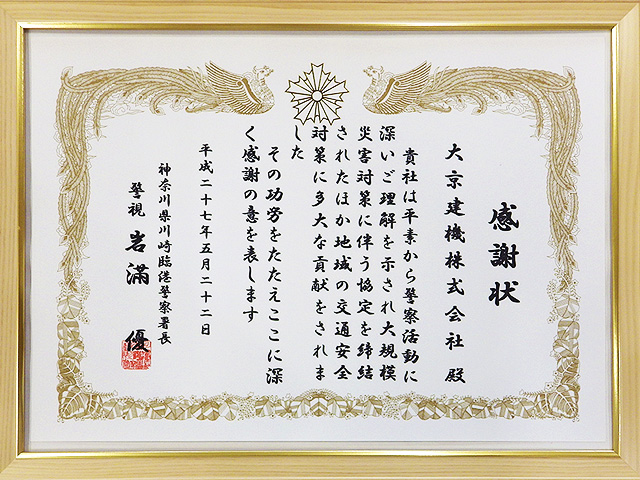 感謝状
大京建機株式会社 殿
貴社は平素から警察活動に
深いご理解を示され大規模
災害対策に伴う協定を締結
されたほか地域の交通安全
対策に多大な貢献をされま
した
その功労をたたえここに深
く感謝の意を表します
平成二十七年五月二十二日
神奈川県川崎臨港警察署長
警視 岩満 優